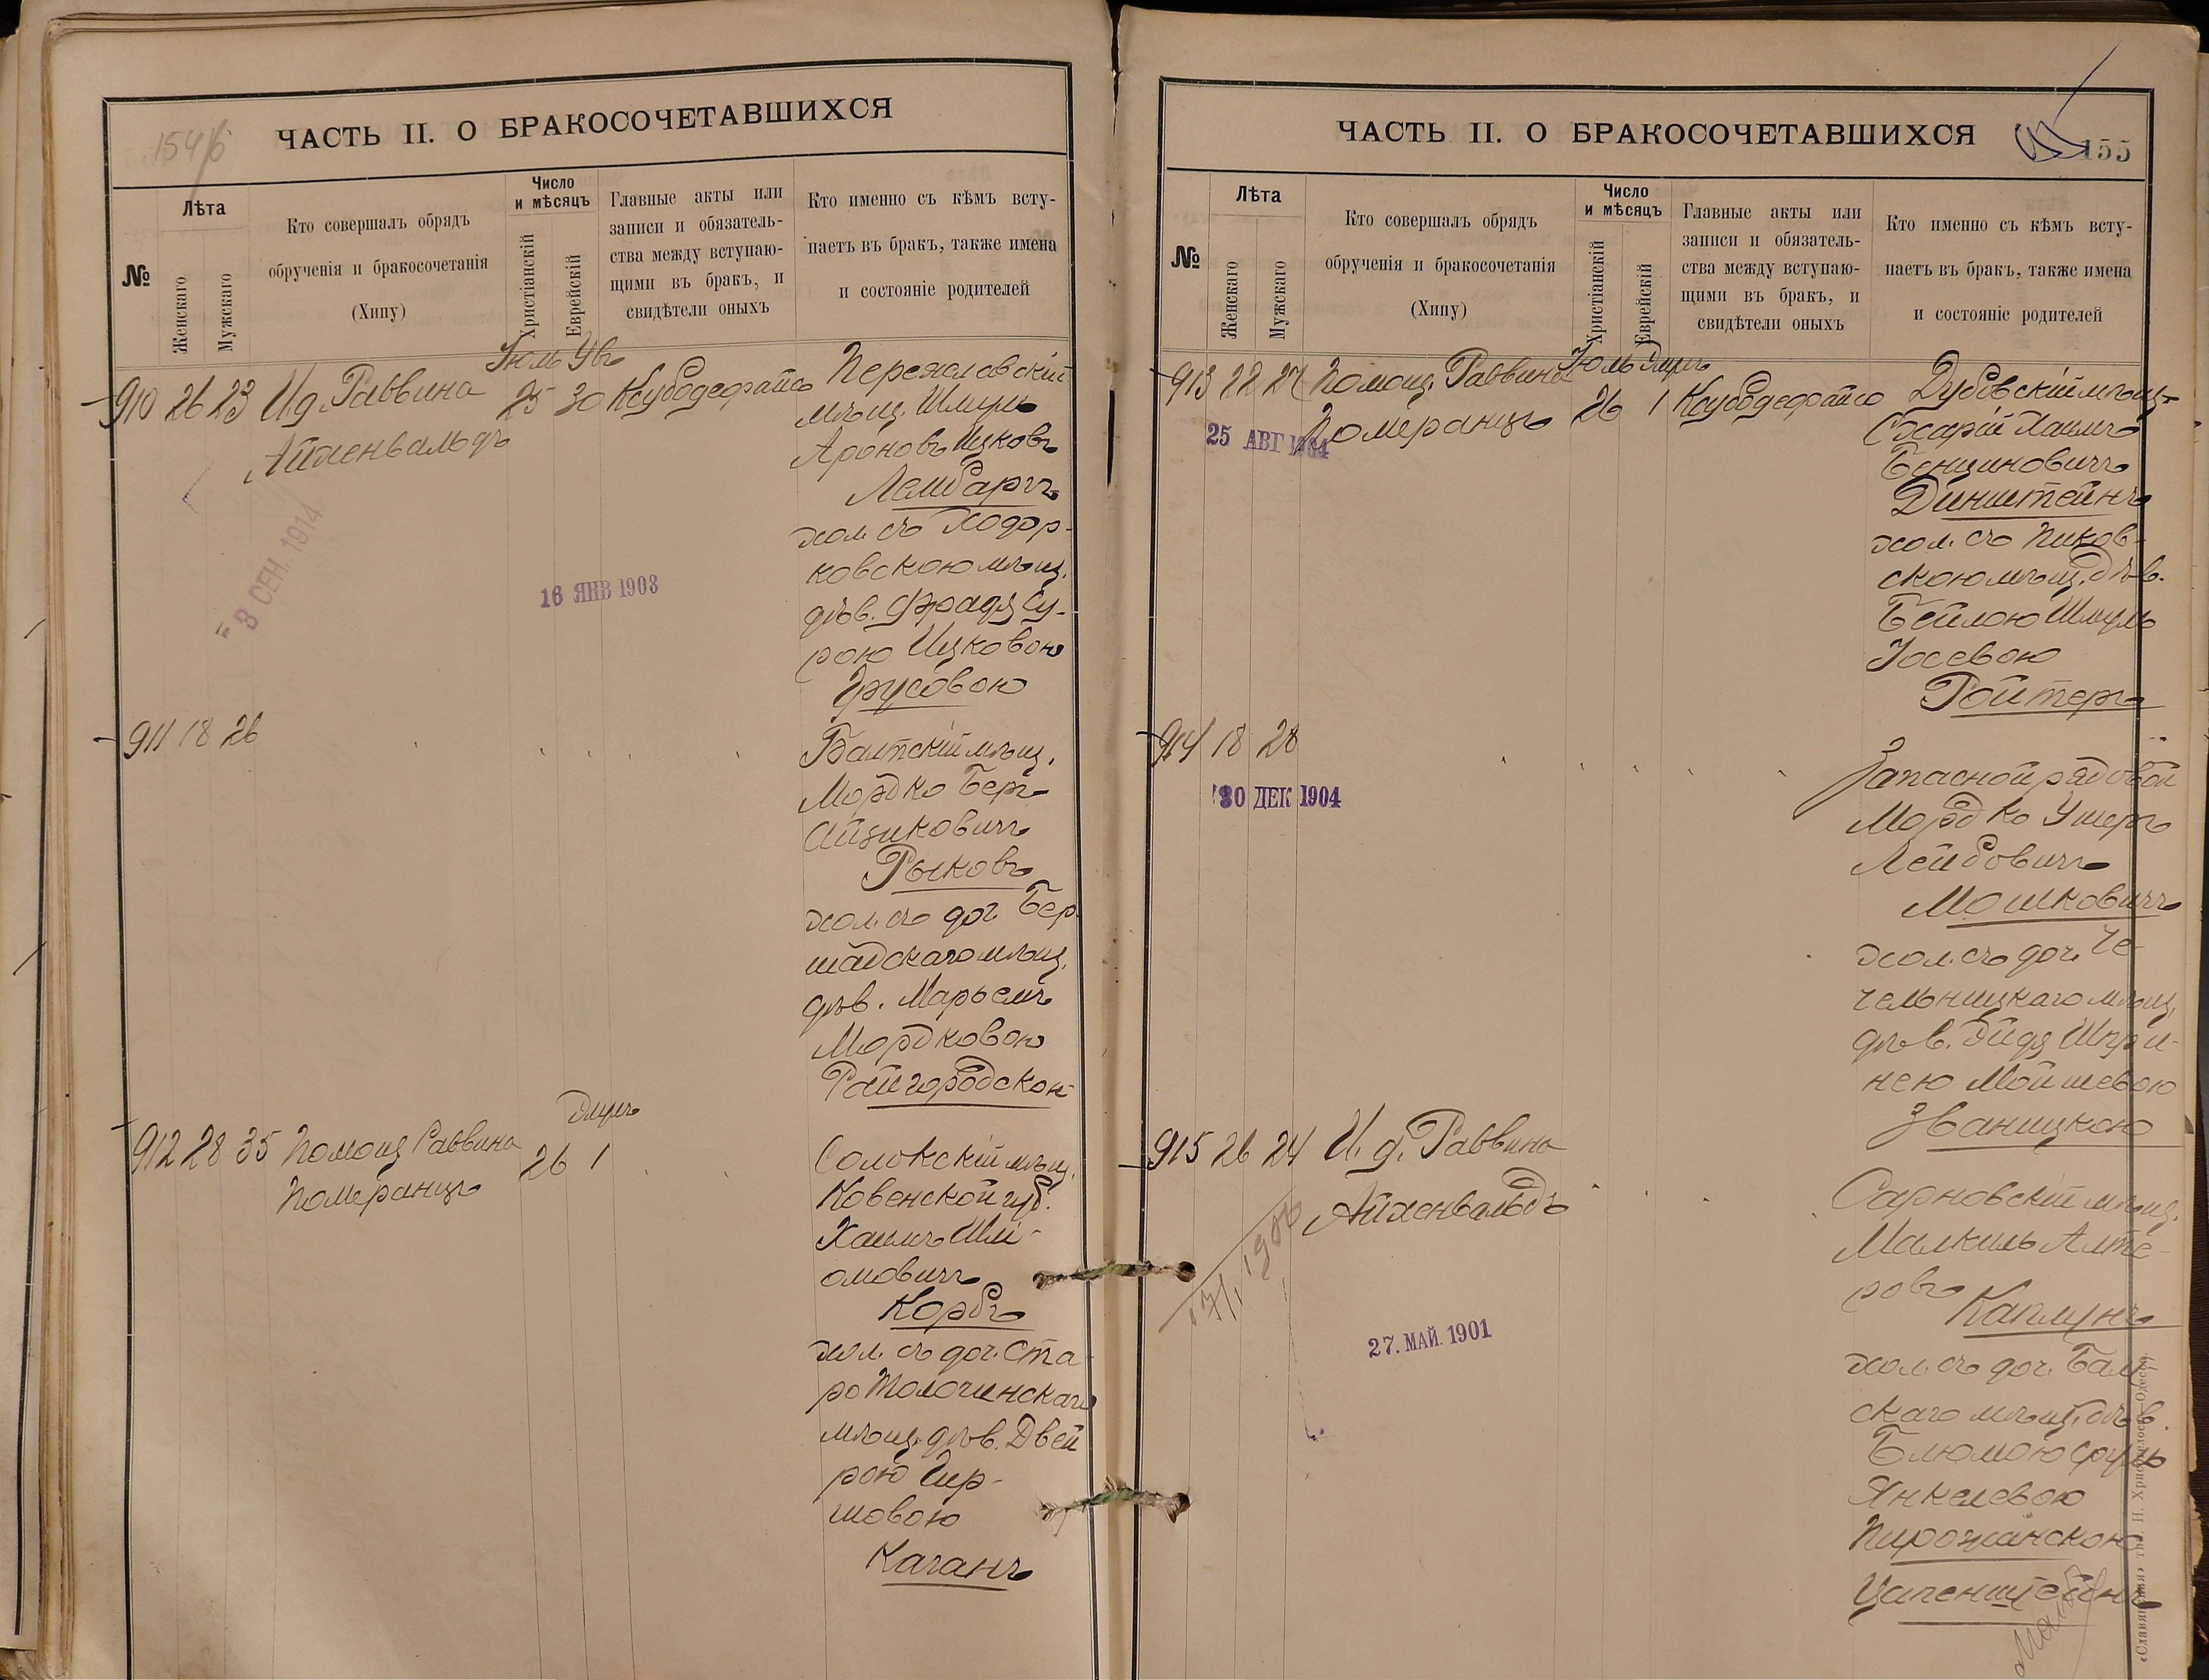 154/б
ЧАСТЬ II. О БРАКОСОЧЕТАВШИХСЯ
№
Лѣта
Женскаго
Мужскаго
Кто совершалъ обрядъ
обрученія и бракосочетанія
(Хипу)
Число
и мѣсяцъ
Христіанскій
Еврейскій
Главные акты или
записи и обязатель-
ства между вступаю-
щими въ бракъ, и
свидѣтели оныхъ
Кто именно съ кѣмъ всту-
паетъ въ бракъ, также имена
и состояніе родителей
Іюль Ув
910 26 23 И.д. Раввина 25 30 Ксубодефайсъ
Айхенвальдъ
8 СЕН. 1914
16 ЯНВ 1908
Переяславскій
мѣщ. Шмуль
Ароновъ Ицковъ
Лембаргъ
хол. съ Ходор-
ковскою мѣщ.
дѣв. Фрадя Су-
рою Ицковою
Грусовою
911 18 26
Балтскій мѣщ.
Мордко Беръ
Айзиковичъ
Рыковъ
хол. съ доч. Бер-
шадскаго мѣщ.
дѣв. Марьемъ
Мордковою
Райгородскою
912 28 35 Помощ Раввина 26 1
Померанцъ
Солокскій мѣщ.
Ковенской губ.
Хаимъ Шлі-
омовичъ
Корбъ
хол. съ доч. Ста-
ро Толочинскаго
мѣщ. дѣв. Двей
рою Гир-
шовою
Каганъ
ЧАСТЬ II. О БРАКОСОЧЕТАВШИХСЯ
155
№
Лѣта
Женскаго
Мужскаго
Кто совершалъ обрядъ
обрученія и бракосочетанія
(Хипу)
Число
и мѣсяцъ
Христіанскій
Еврейскій
Главные акты или
записи и обязатель-
ства между вступаю-
щими въ бракъ, и
свидѣтели оныхъ
Кто именно съ кѣмъ всту-
паетъ въ бракъ, также имена
и состояніе родителей
Іюль
913 22 27 Помощ. Раввина 26 1 Ксубодефайсъ
Померанцъ
25 АВГ 1904
Дубовскій мѣщ.
Хаимъ
Бенциновичъ
Динштейнъ
хол. съ Пиков-
скою мѣщ. дѣв.
Бейлою Шмуль
Іосевою
Ройтеръ
914 18 28
30 ДЕК 1904
Запасной рядовой
Мордко Ушеръ
Лейбовичъ
Мошковичъ
хол. съ доч. Че-
чельницкаго мѣщ.
дѣв. Эйдя Шпри-
нею Мойшевою
Званицкою
915 26 24 И.д. Раввина
Айхенвальдъ
27. МАЙ. 1901
Сарновскій мѣщ.
Малкиль Алте-
ровъ
Каплунъ
хол. съ доч. Балт
скаго мѣщ. дѣв.
Блюмою Сруль
Янкелевою
Пирожанскою
Цапенштейнъ